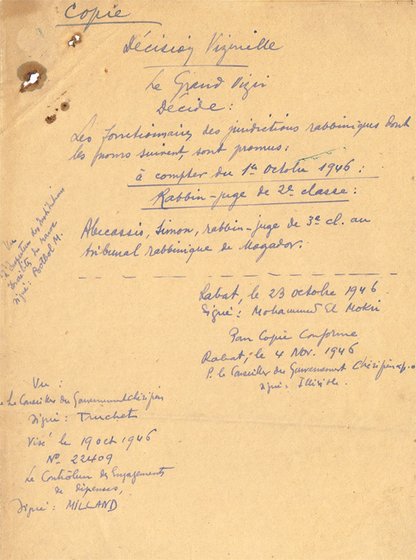 Copie
Décision Vizirielle
Le Grand Vizir
Décide :
Les fonctionnaires des juridictions rabbiniques dont
les noms suivent sont promus :
à compter du 1er Octobre 1946 :
Rabbin-juge de 2e classe :
Abecassis, Simon, rabbin-juge de 3e cl. au
tribunal rabbinique de Mogador.
Rabat, le 23 octobre 1946
Signé : Mohammed El Mokri
Pour Copie Conforme
Rabat, le 4 Nov. 1946
P. le Conseiller du Gouvernement Chérifien
signé : Illisible.
Vu
l'Inspecteur des Institutions
israélites du Maroc
signé : Botbol M.
Vu :
Le Conseiller du Gouvernement Chérifien
signé : Truchet
Visé le 19 oct 1946
N° 22409
Le Contrôleur des Engagements
de dépenses,
Signé : MILLAND